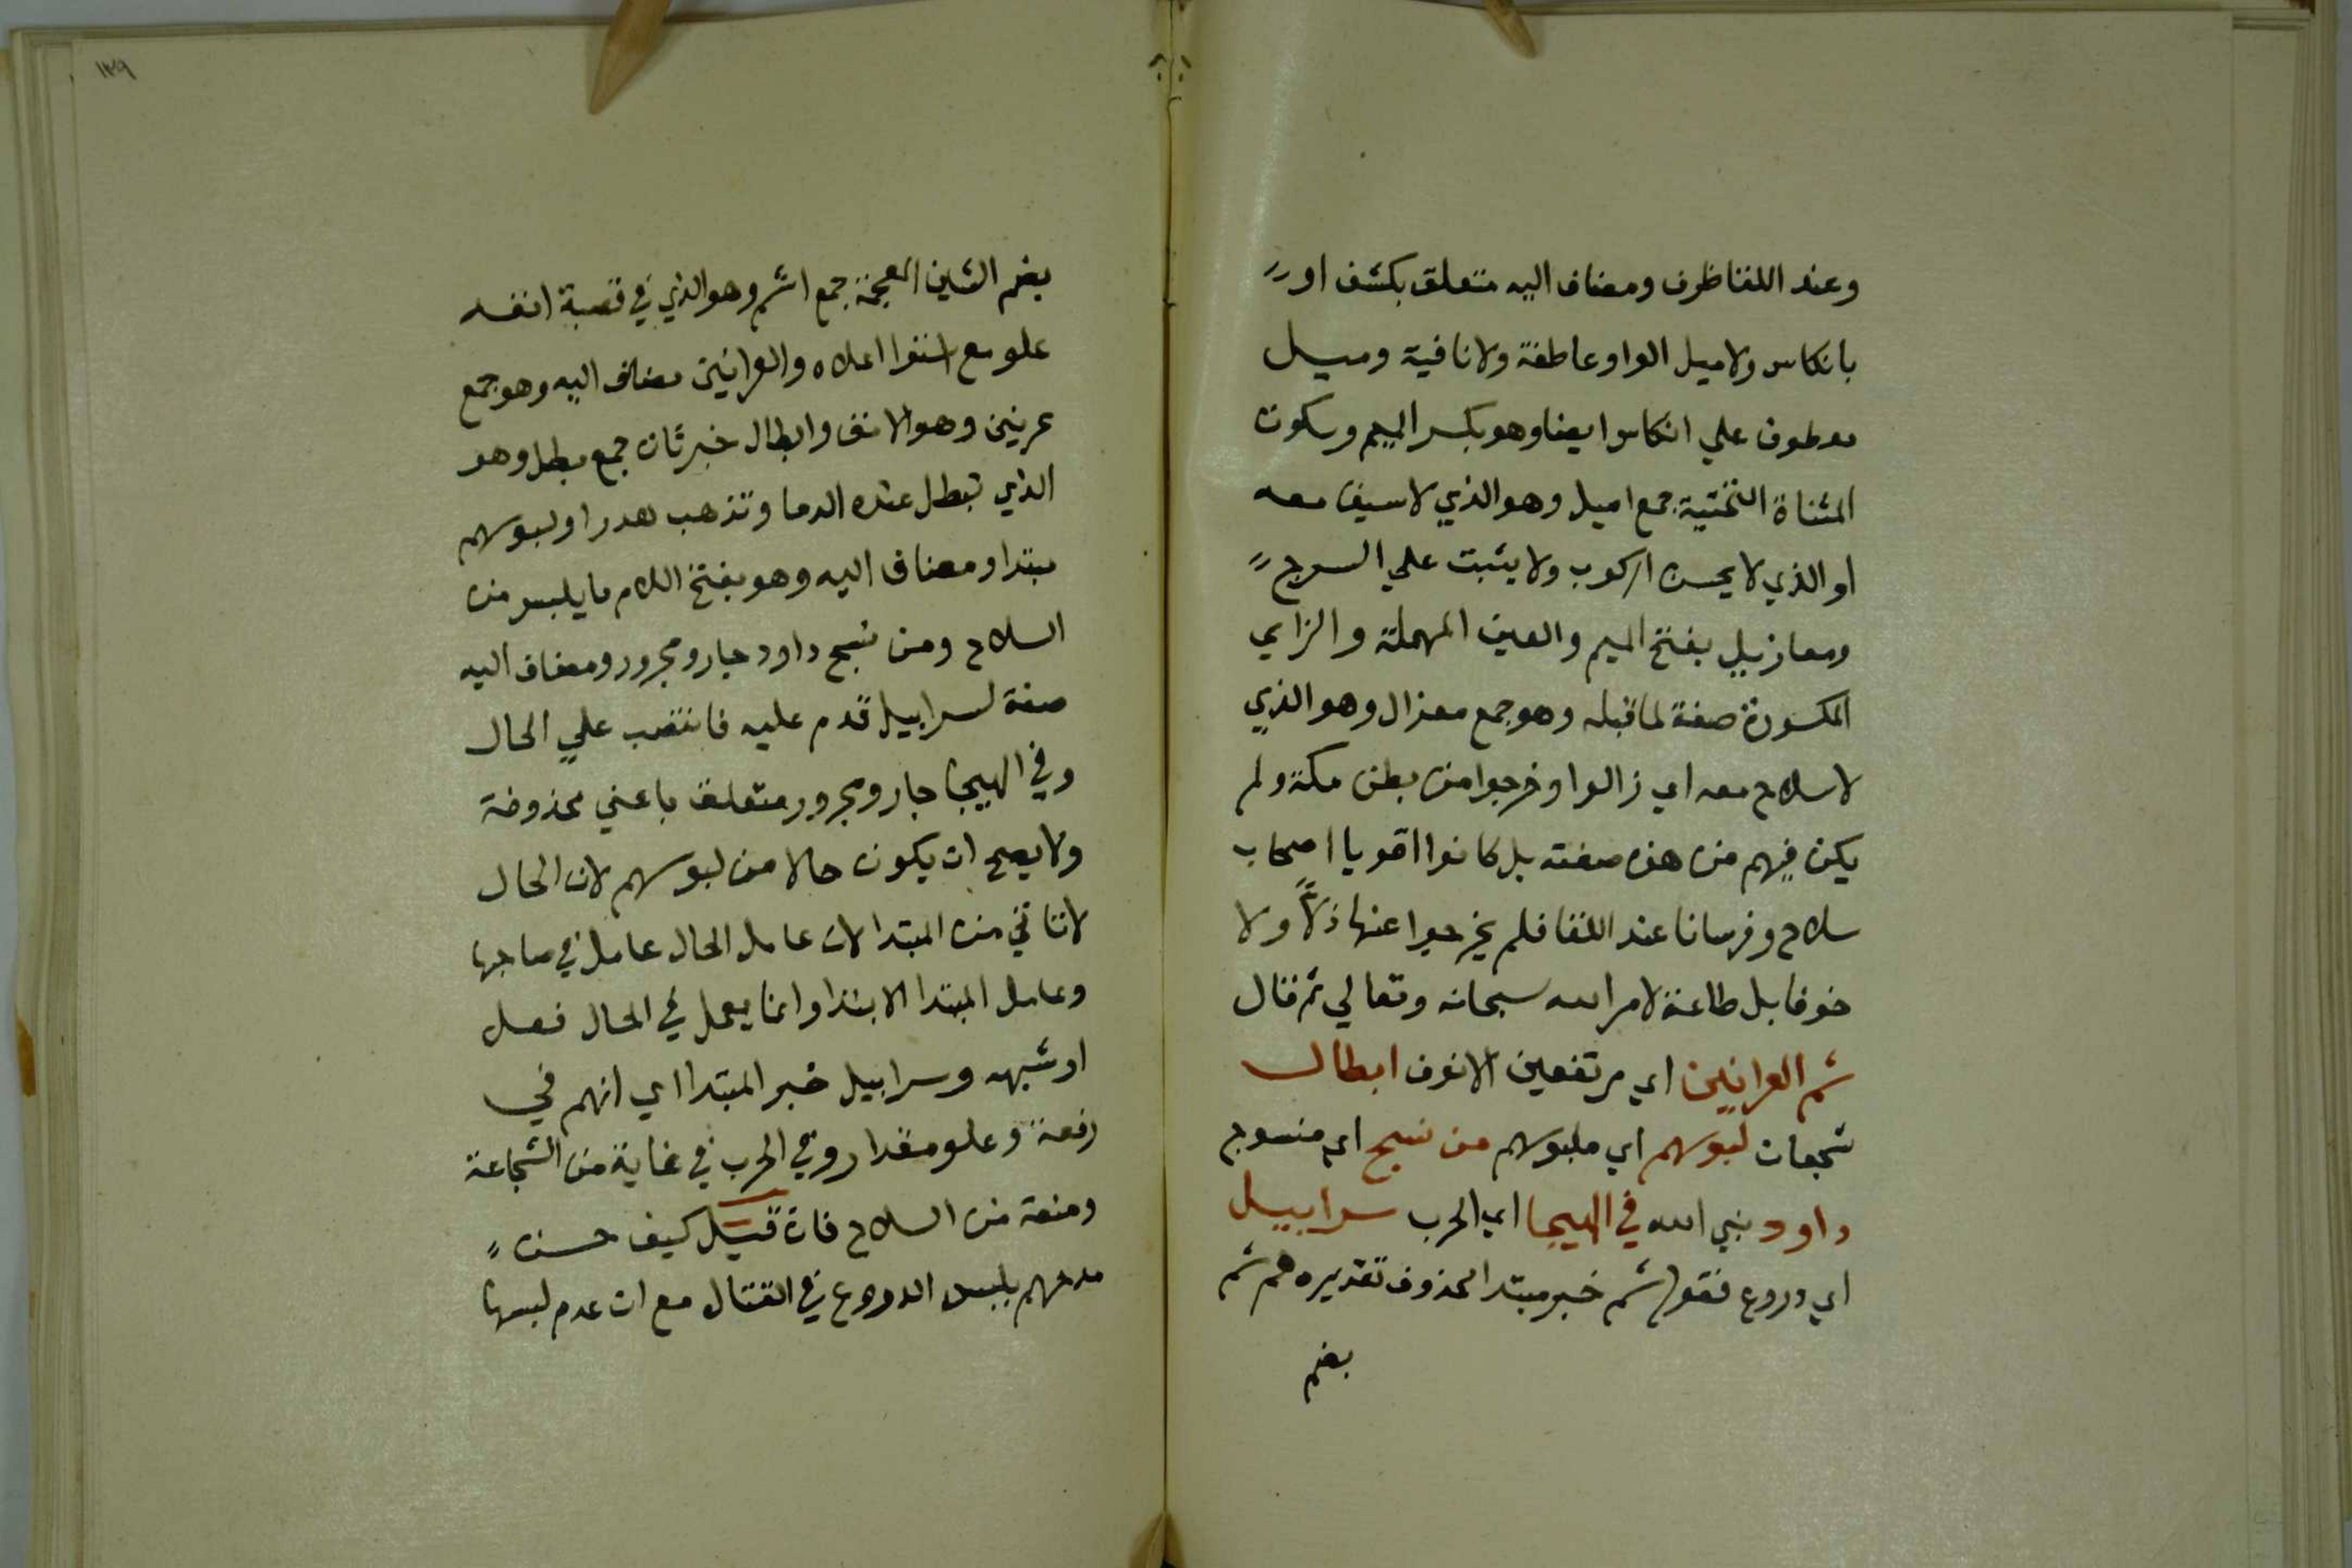 وعند اللقا ظرف ومضاف اليه متعلق بكشف او
بانكاس ولا ميل الواو عاطفة ولا نافية وميل
معطوف علي انكاس ايضا وهو بكسر الميم وسكون
المثناة التحتية جمع اميل وهو الذي لا سيف معه
او الذي لا يحسن الركوب ولا يثبت علي السرج
ومعازيل بفتح الميم والعين المهملة والزاي
المكسورة صفة لما قبله وهو جمع معزال وهو الذي
لا سلاح معه اي زالوا وخرجوا من بطن مكة ولم
يكن فيهم من هذه صفته بل كانوا اقويا اصحاب
سلاح وفرسانا عند اللقا فلم يخرجوا عنها ذلاً ولا
خوفا بل طاعة لامر الله سبحانه وتعالي ثم قال
شم العرانين اي مرتفعين الانوف ابطال
شجعان لبوسهم اي ملبوسهم من نسج اي منسوج
داود نبي الله في الهيجا اي الحرب سرابيل
اي دروع فقوله شم خبر مبتدا محذوف تقديره هم شم
بضم
١٣٩
بضم الشين المعجمة جمع اشم وهو الذي في قصبة انفه
علو مع استوا اعلاه والعرانين مضاف اليه وهو جمع
عرنين وهو الانف وابطال خبر ثان جمع بطل وهو
الذي تبطل عنده الدما وتذهب هدرا ولبوسهم
مبتدا ومضاف اليه وهو بفتح اللام ما يلبس من
السلاح ومن نسج داود جار ومجرور ومضاف اليه
صفة لسرابيل قدم عليه فانتصب علي الحال
وفي الهيجا جار ومجرور متعلق باعني محذوفة
ولا يصح ان يكون حالا من لبوسهم لان الحال
لا تاتي من المبتدا لان عامل الحال عامل في صاحبها
وعامل المبتدا الابتدا وانما يعمل في الحال فعل
او شبهه وسرابيل خبر المبتدا اي انهم في
رفعة وعلو مقدار وفي الحرب في غاية من الشجاعة
ومنعة من السلاح فان قيل كيف حسن
مدحهم بلبس الدروع في القتال مع ان عدم لبسها